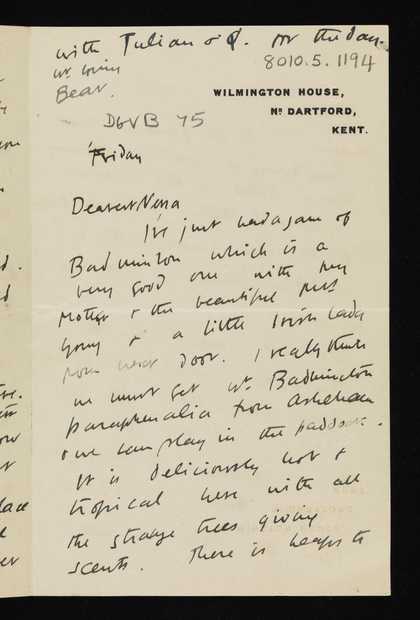 with Julian & Q. Or the day.
w. loving
Bear.
8010.5.1194
WILMINGTON HOUSE,
Nr DARTFORD,
KENT.
DGVB 75
Friday
Dearest Nessa
I've just had a game of
Badminton which is a
very good one with my
Mother & the beautiful Mrs
Young & a little Irish lady
from next door. I really think
we must get the Badminton
paraphenalia from Asheham
& we can play in the paddock.
It is deliciously hot &
tropical here with all
the strange trees giving
scents. There is heaps to